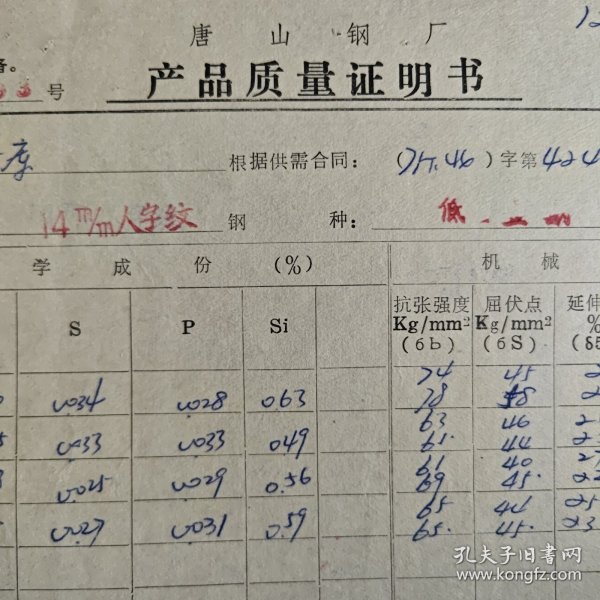 唐山钢厂
产品质量证明书
号
根据供需合同：（71.46）字第424
14m/m人字纹 钢种：低
学成份（%） 机械
S P Si 抗张强度 屈伏点 延伸
Kg/mm² Kg/mm² %
(бb) (бS) (δ5
74 45
0.034 0.028 0.63 78 48
63 46
0.033 0.033 0.49 65 44
61 40
0.025 0.029 0.56 69 45
65 44 25
0.027 0.031 0.59 65 45 23
孔夫子旧书网
www.kongfz.com